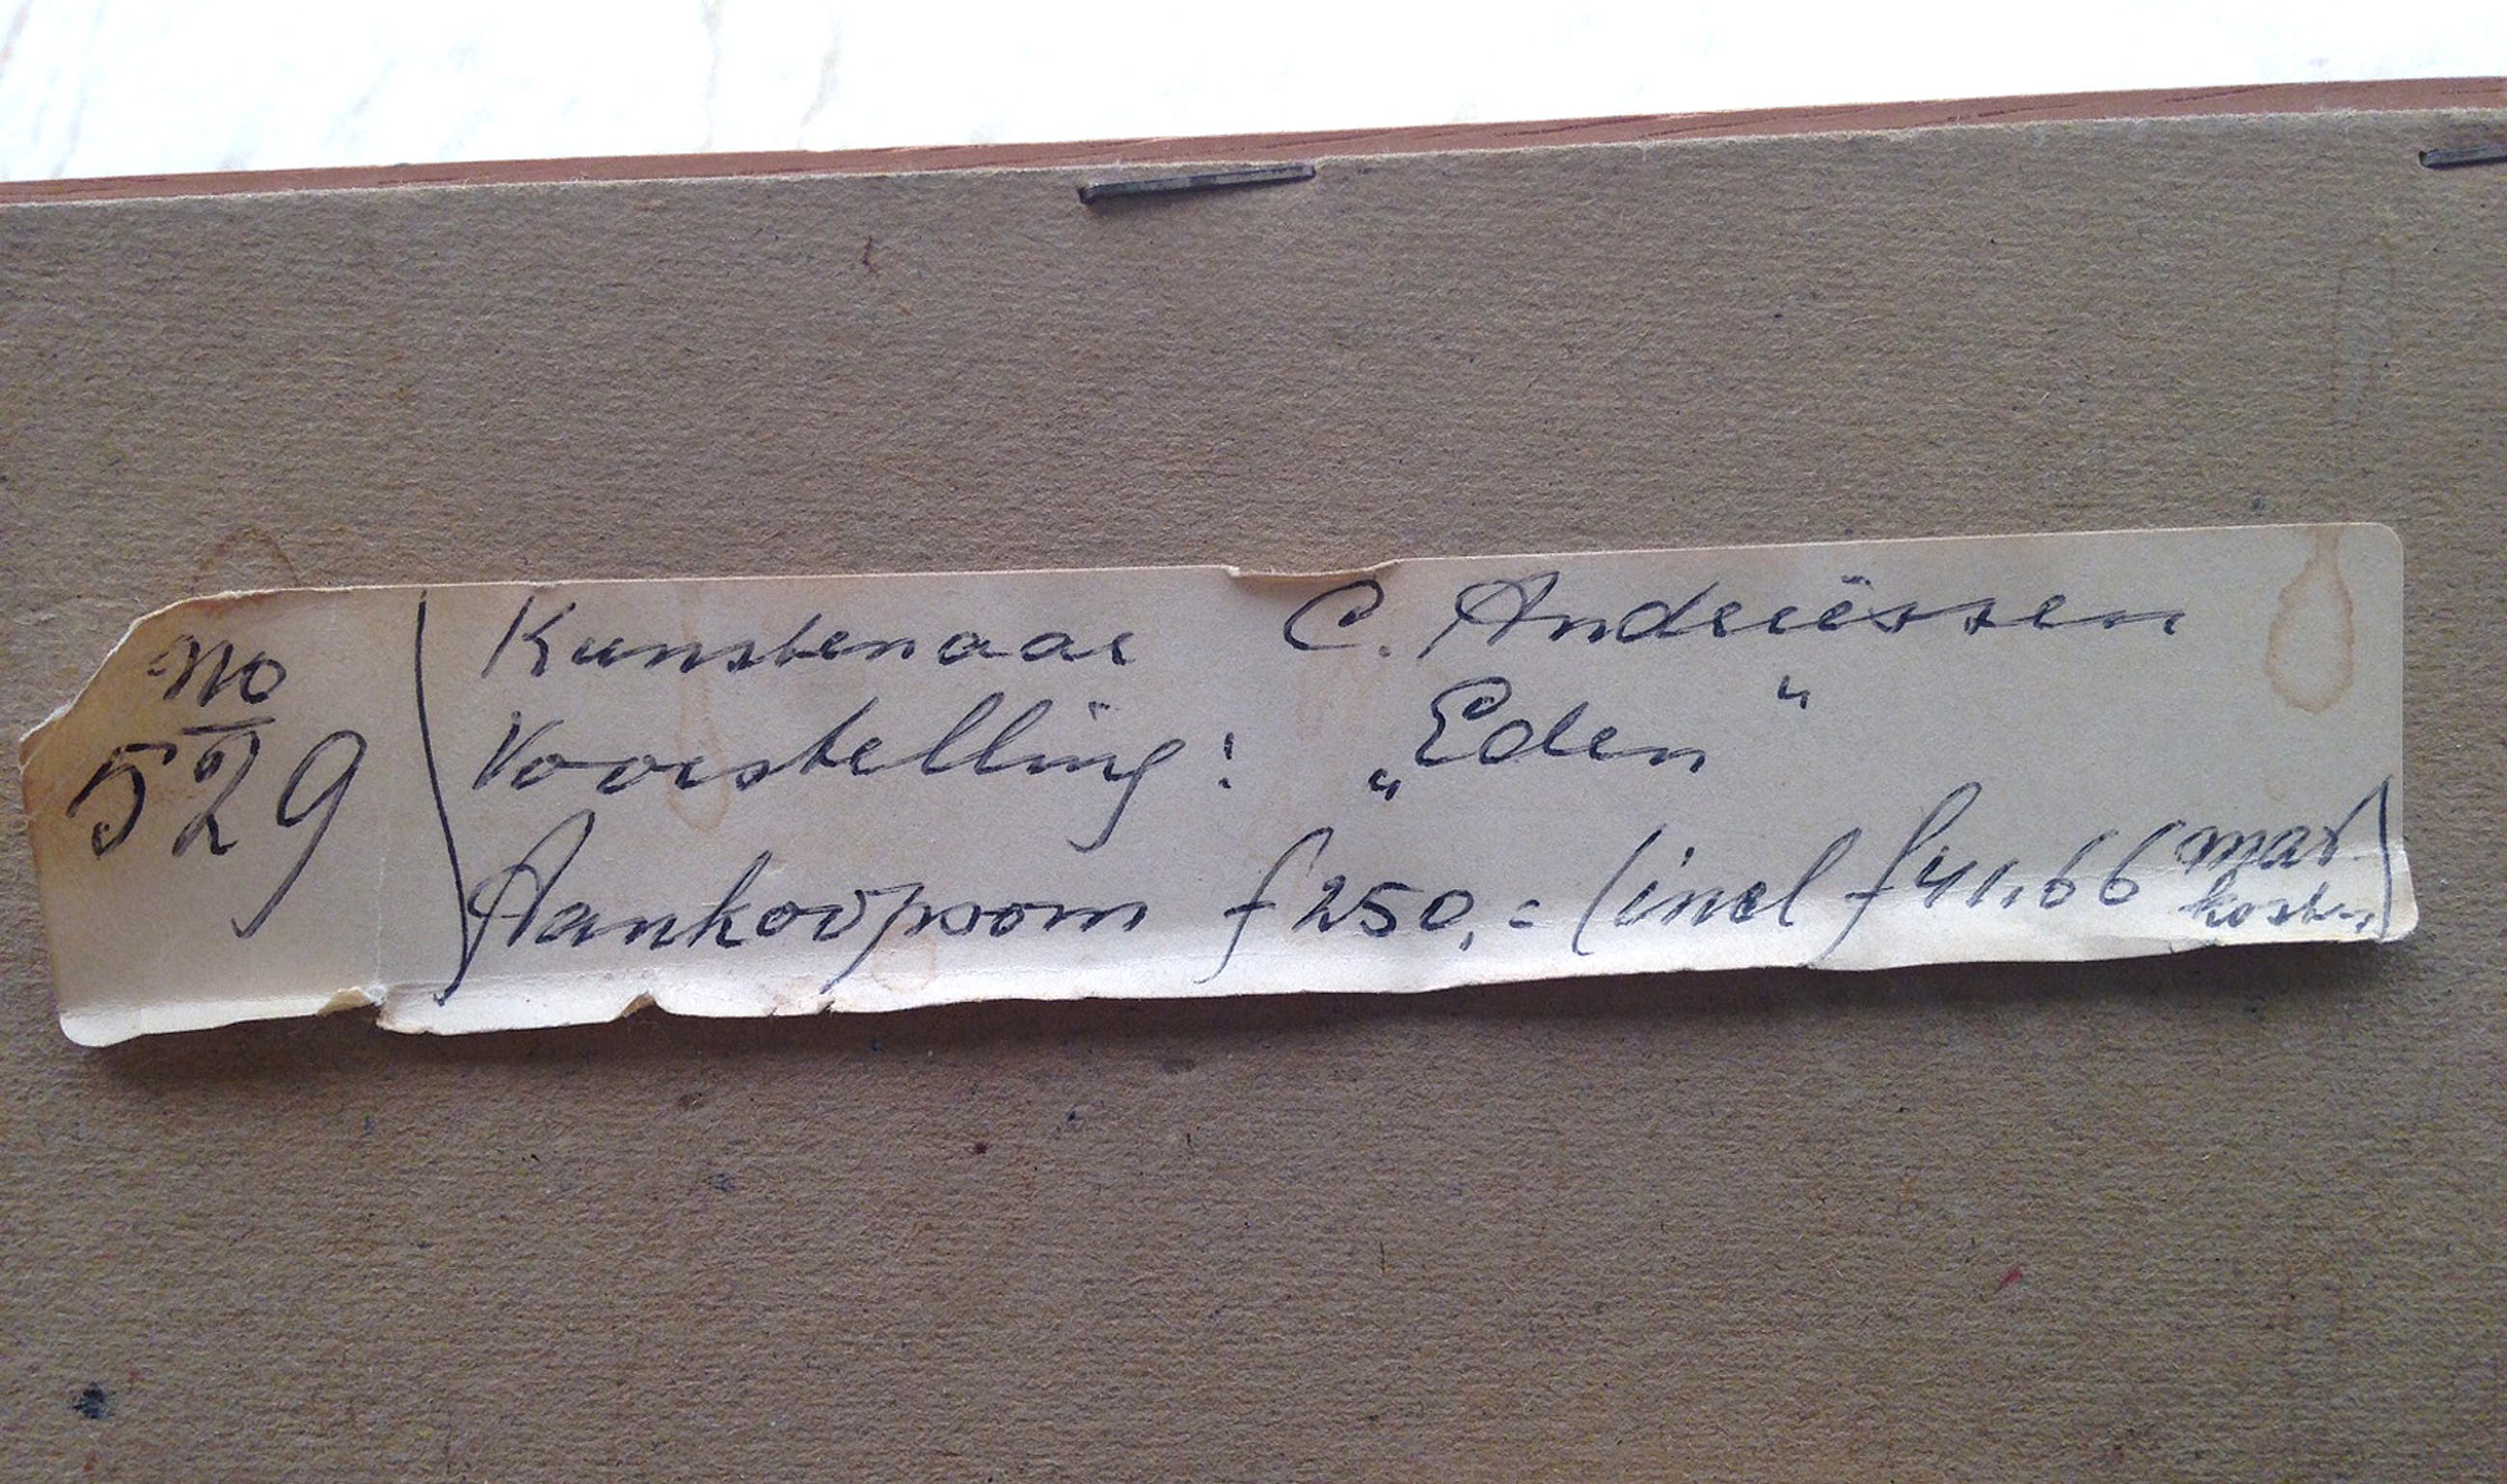 No
529
Kunstenaar C. Andriëssen
Voorstelling: „Eden"
Aankoopsom f 250,= (incl f 41,66 mat
kosten)